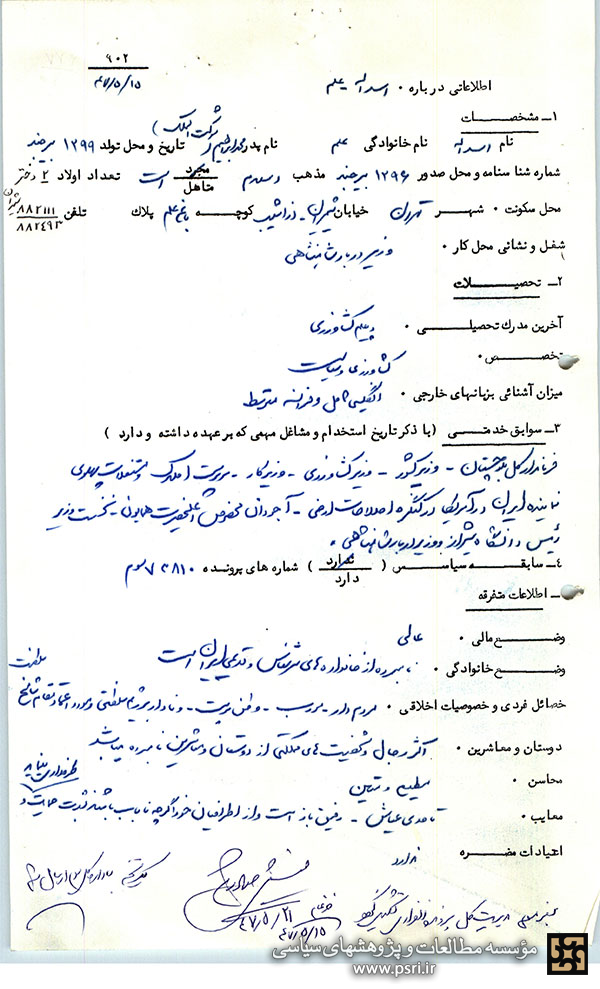 ۹۰۲
۴۷/۵/۱۵
اطلاعاتی درباره ۰ اسداله علم
۱ـ مشخصات
نام اسداله نام خانوادگی علم نام پدر محمد ابراهیم (شوکت الملک) تاریخ و محل تولد ۱۲۹۹ بیرجند
شماره شناسنامه و محل صدور ۱۲۹۶ بیرجند مذهب اسلام مجرد متاهل است تعداد اولاد ۲ دختر
محل سکونت ۰ شهر تهران خیابان شمیران ـ کوچه باغ علم پلاک تلفن شمیران ۸۸۲۱۱۱
۸۸۲۴۹۳
شغل و نشانی محل کار ۰ وزیر دربار شاهنشاهی
۲ـ تحصیلات
آخرین مدرک تحصیلی ۰ دیپلم کشاورزی
تخصص ۰ کشاورزی و سیاست
میزان آشنائی بزبانهای خارجی ۰ انگلیسی کامل و فرانسه متوسط
۳ـ سوابق خدمتی (با ذکر تاریخ استخدام و مشاغل مهمی که بر عهده داشته و دارد )
فرماندار کل بلوچستان ـ وزیر کشور ـ وزیر کشاورزی ـ وزیر کار ـ سرپرست املاک و مستغلات پهلوی
نماینده ایران در آمریکا در کنگره اصلاحات ارضی ـ آجودان مخصوص اعلیحضرت همایون ـ نخست وزیر
رئیس دانشگاه شیراز و وزیر دربار شاهنشاهی ۰
۴ـ سابقه سیاسی ( ندارد دارد ) شماره های پرونده ۷۳۸۱۰ سوم
ـ اطلاعات متفرقه
وضع مالی ۰ عالی
وضع خانوادگی ۰ نامبرده از خانواده های سرشناس و قدیمی ایران است
خصائل فردی و خصوصیات اخلاقی ۰ مردم دار ـ مودب ـ وطن پرست ـ و وفادار برژیم سلطنتی و مورد اعتماد مقام شامخ سلطنت
دوستان و معاشرین ۰ اکثر رجال و شخصیت های مملکتی از دوستان و معاشرین نامبرده میباشد
محاسن ۰ سلیم و متین
معایب ۰ تا حدی عیاش ـ رفیق باز است و از اطرافیان خود اگرچه ناباب باشند شدت حمایت و طرفداری مینماید
اعتیادات مضره ندارد
۴۷/۵/۲۱
۴۷/۵/۱۵
مؤسسه مطالعات و پژوهشهای سیاسی
www.psri.ir